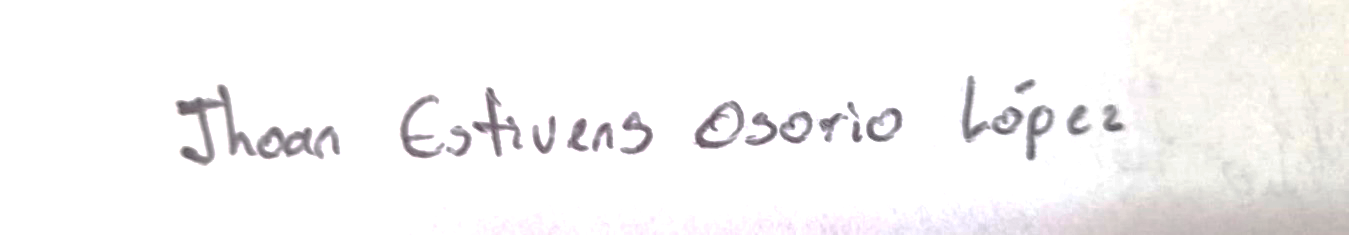 Jhoan Estivens Osorio López